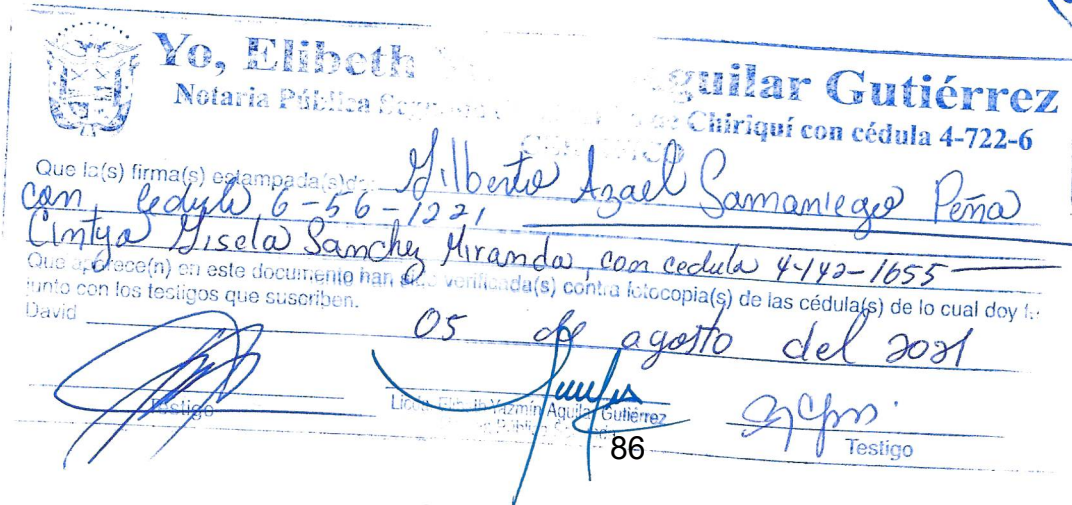 Yo, Elibeth guilar Gutiérrez
Notaria Pública de Chiriquí con cédula 4-722-6
Que la(s) firma(s) estampada(s) de: Gilberto Azael Samaniego Peña
con cedula 6-56-1221
Cintya Gisela Sanchez Miranda, con cedula 4-142-1655
Que aparece(n) en este documento han sido verificada(s) contra fotocopia(s) de las cédula(s) de lo cual doy fe
junto con los testigos que suscriben.
David 05 de agosto del 2021
Testigo
Licda. Elibeth Yazmín Aguilar Gutiérrez
86
Testigo